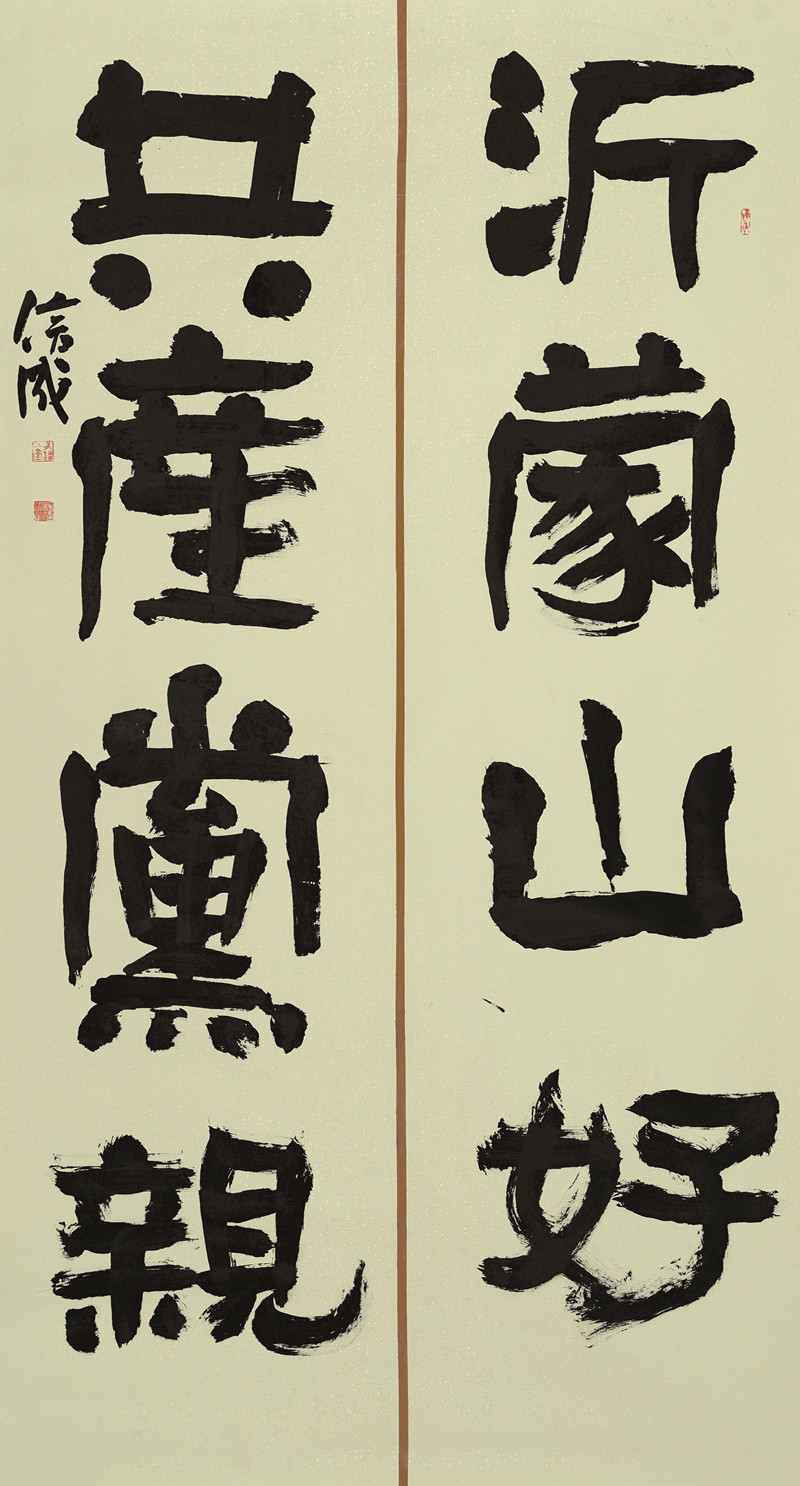 沂蒙山好
共產黨親
信成